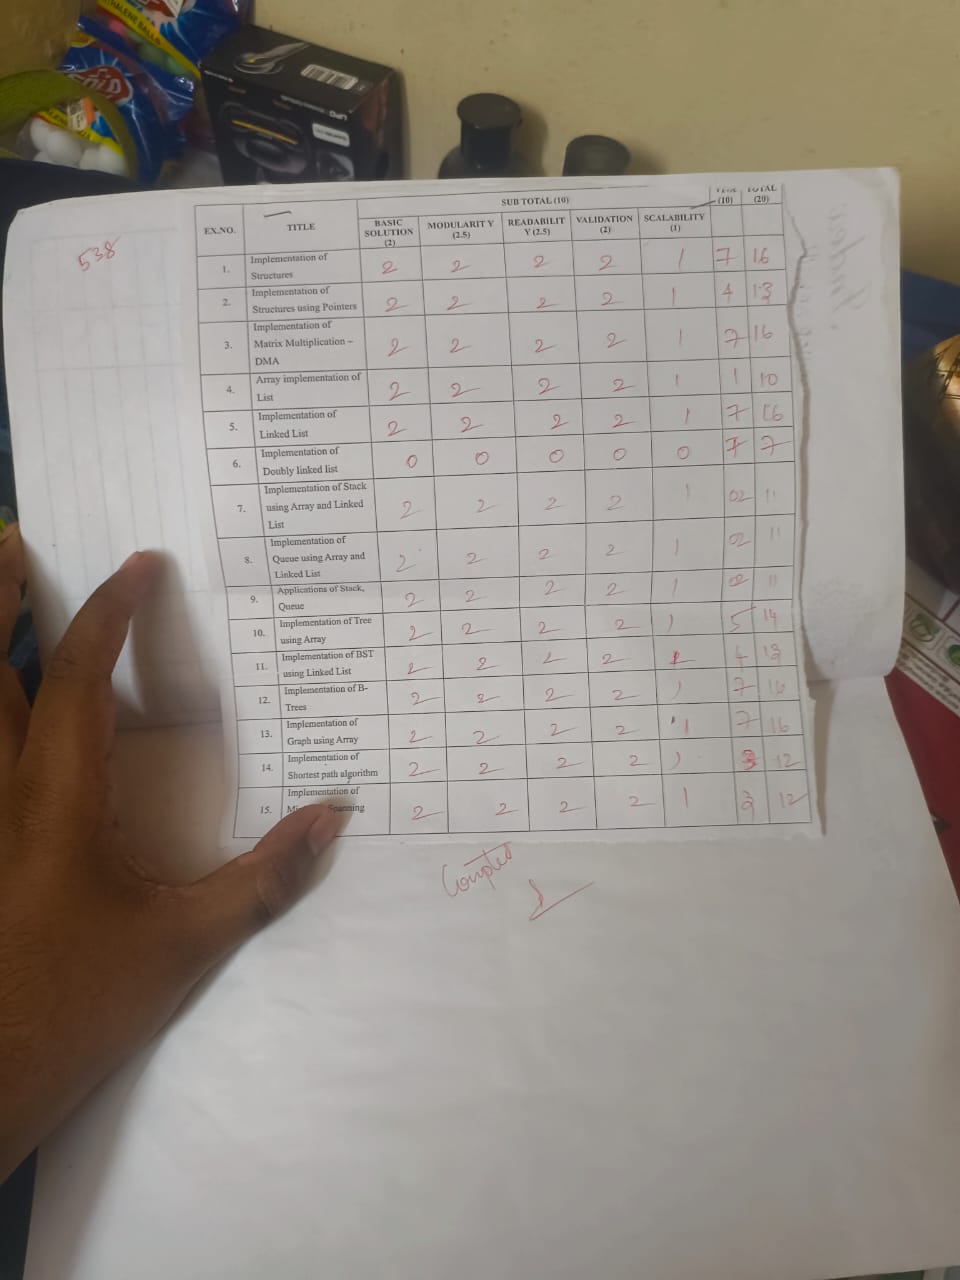 THALENE BALLS
538
SUB TOTAL (10)
(10)
TOTAL (20)
EX.NO.
TITLE
BASIC SOLUTION (2)
MODULARIT Y (2.5)
READABILIT Y (2.5)
VALIDATION (2)
SCALABILITY (1)
1. Implementation of Structures 2 2 2 2 1 7 16
2. Implementation of Structures using Pointers 2 2 2 2 1 4 13
3. Implementation of Matrix Multiplication – DMA 2 2 2 2 1 7 16
4. Array implementation of List 2 2 2 2 1 1 10
5. Implementation of Linked List 2 2 2 2 1 7 16
6. Implementation of Doubly linked list 0 0 0 0 0 7 7
7. Implementation of Stack using Array and Linked List 2 2 2 2 1 02 11
8. Implementation of Queue using Array and Linked List 2 2 2 2 1 02 11
9. Applications of Stack, Queue 2 2 2 2 1 02 11
10. Implementation of Tree using Array 2 2 2 2 1 5 14
11. Implementation of BST using Linked List 2 2 2 2 1 4 13
12. Implementation of B-Trees 2 2 2 2 1 7 16
13. Implementation of Graph using Array 2 2 2 2 1 7 16
14. Implementation of Shortest path algorithm 2 2 2 2 1 3 12
15. Implementation of Spanning 2 2 2 2 1 3 12